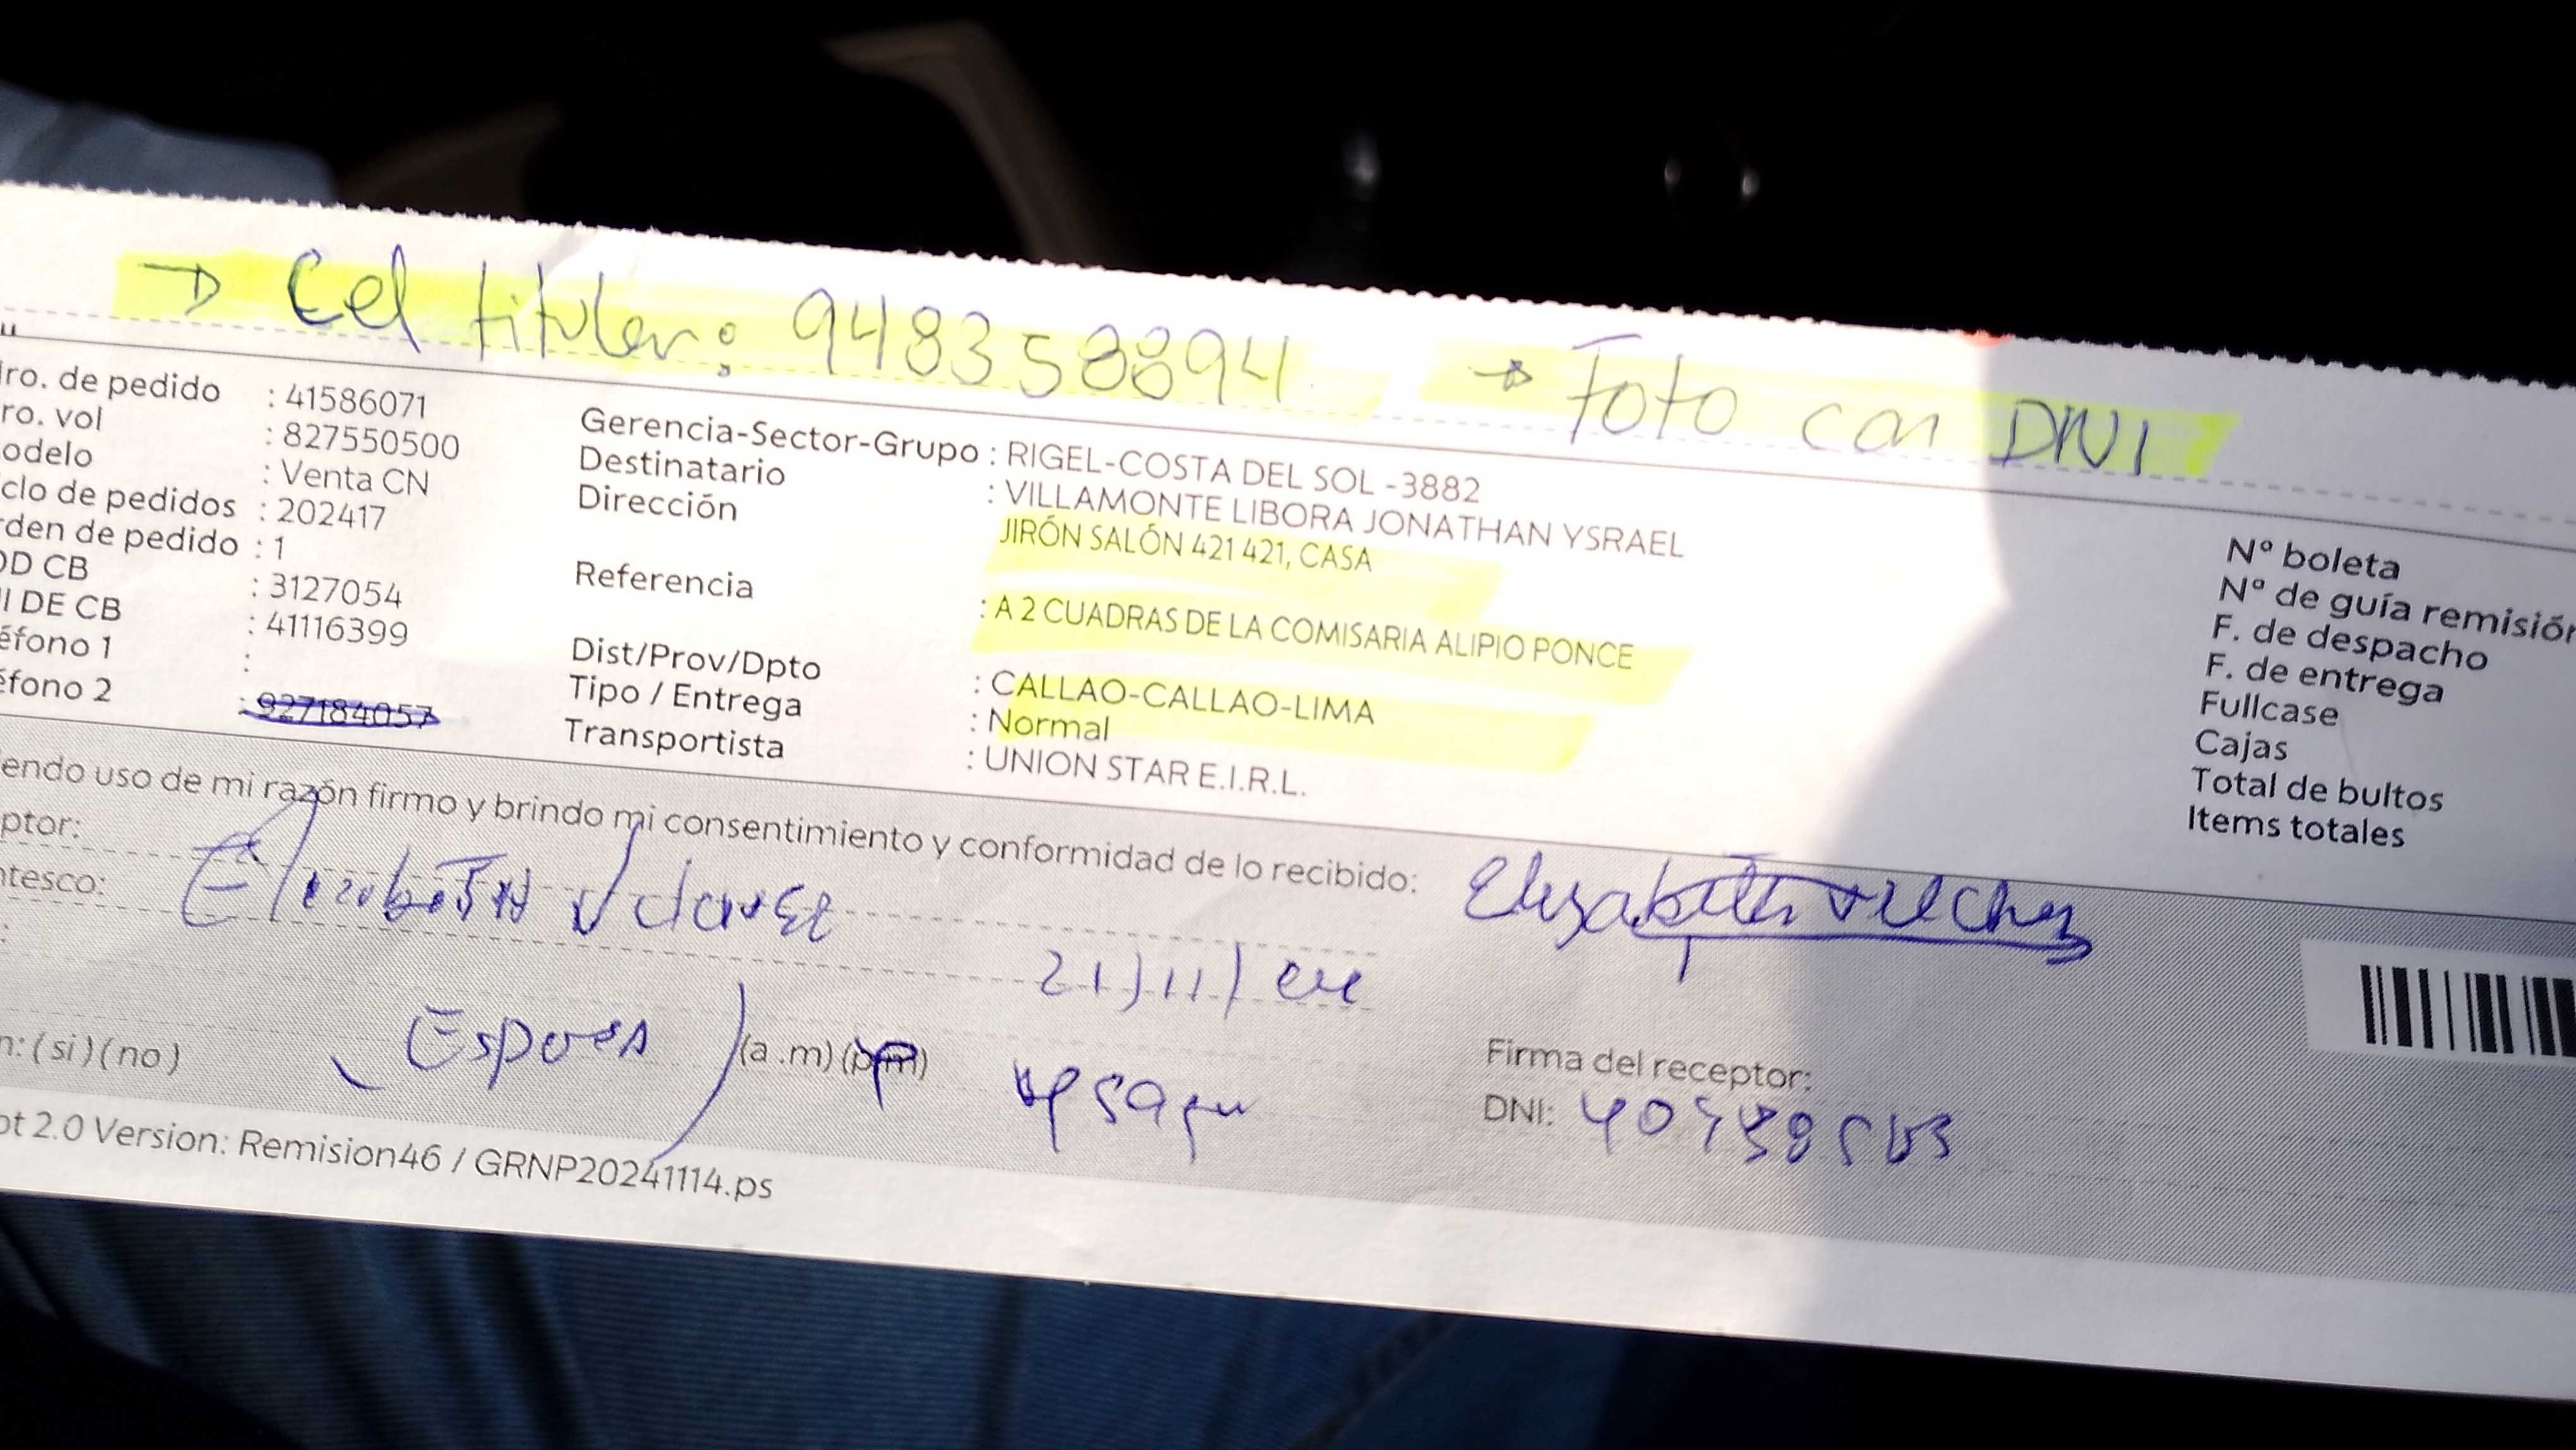 → Cel titular: 948358894 → Foto con DNI
ro. de pedido : 41586071
ro. vol : 827550500
odelo : Venta CN
clo de pedidos : 202417
rden de pedido : 1
OD CB : 3127054
I DE CB : 41116399
éfono 1 :
éfono 2 : 927184057
Gerencia-Sector-Grupo : RIGEL-COSTA DEL SOL -3882
Destinatario : VILLAMONTE LIBORA JONATHAN YSRAEL
Dirección JIRÓN SALÓN 421 421, CASA
Referencia : A 2 CUADRAS DE LA COMISARIA ALIPIO PONCE
Dist/Prov/Dpto : CALLAO-CALLAO-LIMA
Tipo / Entrega : Normal
Transportista : UNION STAR E.I.R.L.
N° boleta
N° de guía remisión
F. de despacho
F. de entrega
Fullcase
Cajas
Total de bultos
Items totales
endo uso de mi razón firmo y brindo mi consentimiento y conformidad de lo recibido:
ptor: Elizabeth
ntesco:
Elizabeth Vilchez
21/11/
Esposa
n: (si) (no) (a .m) (pm)
Firma del receptor:
DNI:
ot 2.0 Version: Remision46 / GRNP20241114.ps